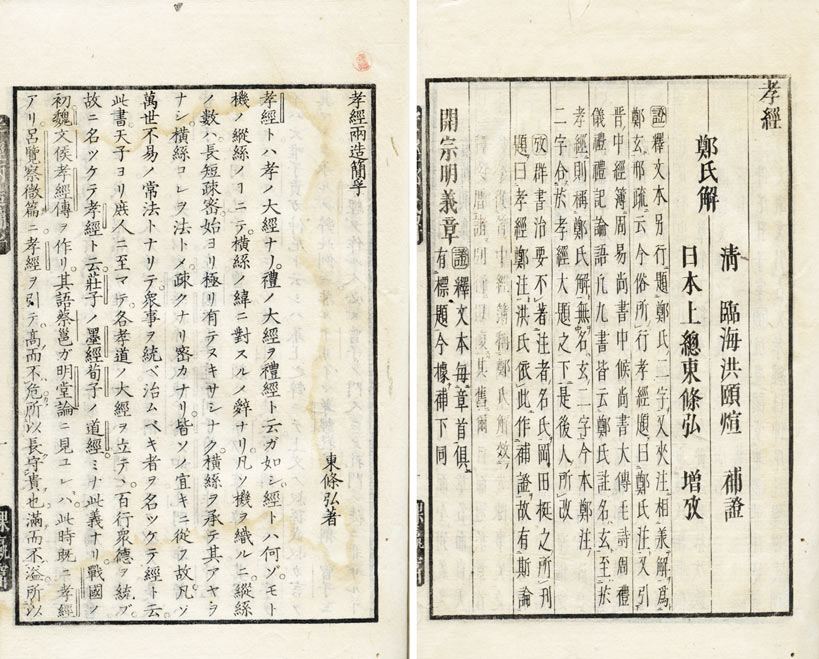 孝經
鄭氏解
清　臨海洪頤煊　補證
日本上總東條弘　增攷
證釋文本另行題鄭氏二字又夾注相兼解爲
鄭玄邢疏云今俗所行孝經題曰鄭氏注又引
晉中經簿周易尚書中候尚書大傳毛詩周禮
儀禮禮記論語凡九書皆云鄭氏註名玄至於
孝經則稱鄭氏解無名玄二字今本鄭氏注
二字合於孝經大題之下是後人所改
攷群書治要不著注者名氏岡田挺之所刊
題曰孝經鄭注洪氏依此作補證故有斯論
開宗明義章
證釋文本每章首俱
有標題今據補下同
孝經兩造簡孚
東條弘著
孝經トハ孝ノ大經ナリ。禮ノ大經ヲ禮經ト云ガ如シ。經トハ何ゾ。モト
機ノ縱絲ノヿニテ。橫絲ノ緯ニ對スルノ辭ナリ。凡ソ機ヲ織ルニ縱絲
ノ數ハ。長短疎密。始ヨリ極リ有テ。ヌキサシナク。橫絲ヲ承テ。其アヤヲ
ナシ。橫絲コレヲ法トメ。疎クナリ密カナリ。皆ソノ宜キニ從フ。故凡ソ
萬世不易ノ常法トナリテ。衆事ヲ統ベ治ムベキ者ヲ名ツケテ經ト云。
此書天子ヨリ庶人ニ至マテ。各孝道ノ大經ヲ立テヽ。百行衆德ヲ統ブ。
故ニ名ツケテ孝經ト云。莊子ノ墨經荀子ノ道經ミナ此義ナリ。戰國ノ
初。魏文侯孝經傳ヲ作リ。其語蔡邕ガ明堂論ニ見ユレハ。此時既ニ孝經
アリ。呂覽察微篇ニ孝經ヲ引テ。高而不危。所以長守貴也。滿而不溢。所以